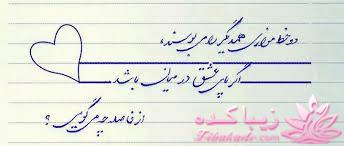 دو خط موازی همدیگر را می بوسند،
اگر پای عشق در میان باشد
از فاصله چه می گویی ؟
زیباکده
Zibakade.com